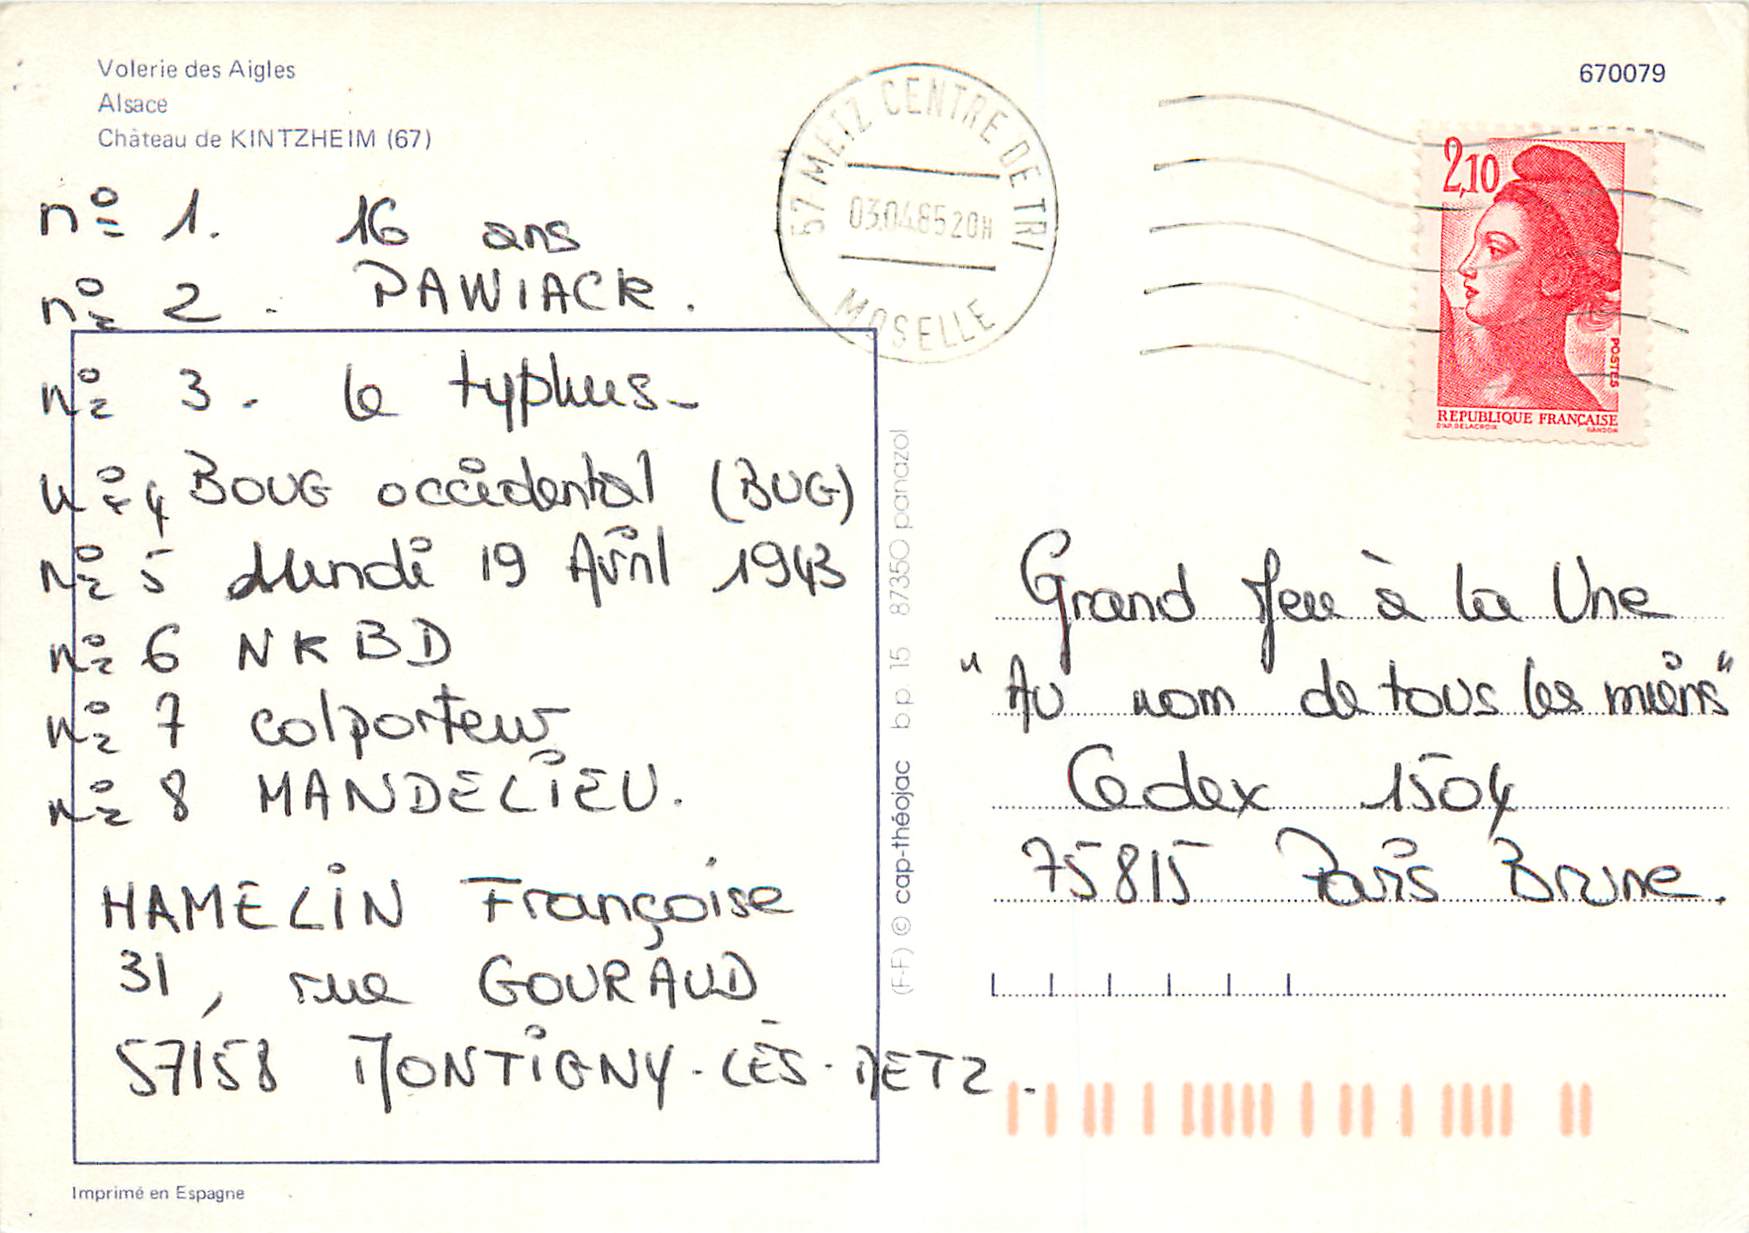 Volerie des Aigles
Alsace
Château de KINTZHEIM (67)
670079
57 METZ CENTRE DE TRI
03.04.85 20H
MOSELLE
2,10
POSTES
REPUBLIQUE FRANÇAISE
D'AP. DELACROIX GANDON
n° 1. 16 ans
n° 2. PAWIACK.
n° 3. le typhus-
n° 4 BOUG occidental (BUG)
n° 5 Lundi 19 Avril 1943
n° 6 NKBD
n° 7 colporteur
n° 8 MANDELIEU.
HAMELIN Françoise
31, rue GOURAUD
57158 MONTIGNY-LÈS-METZ.
(F-F) © cap-théojac bp 15 87350 panazol
Grand Jeu à la Une
"Au nom de tous les miens"
Cedex 1504
75815 Paris Brune.
Imprimé en Espagne